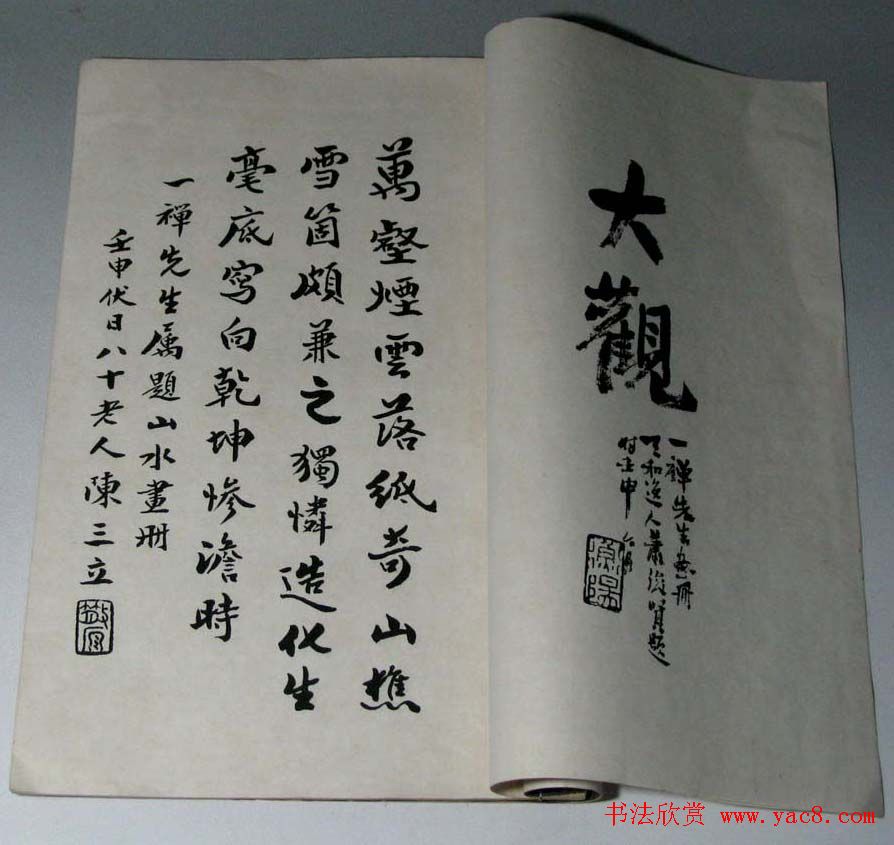 大觀
一禪先生畫冊
天和逸人蕭俊賢題
時壬申
萬壑煙雲落紙奇山樵
雪箇頗兼之獨憐造化生
毫底寫向乾坤慘澹時
一禪先生属題山水畫册
壬申伏日八十老人陳三立
書法欣赏 www.yac8.com